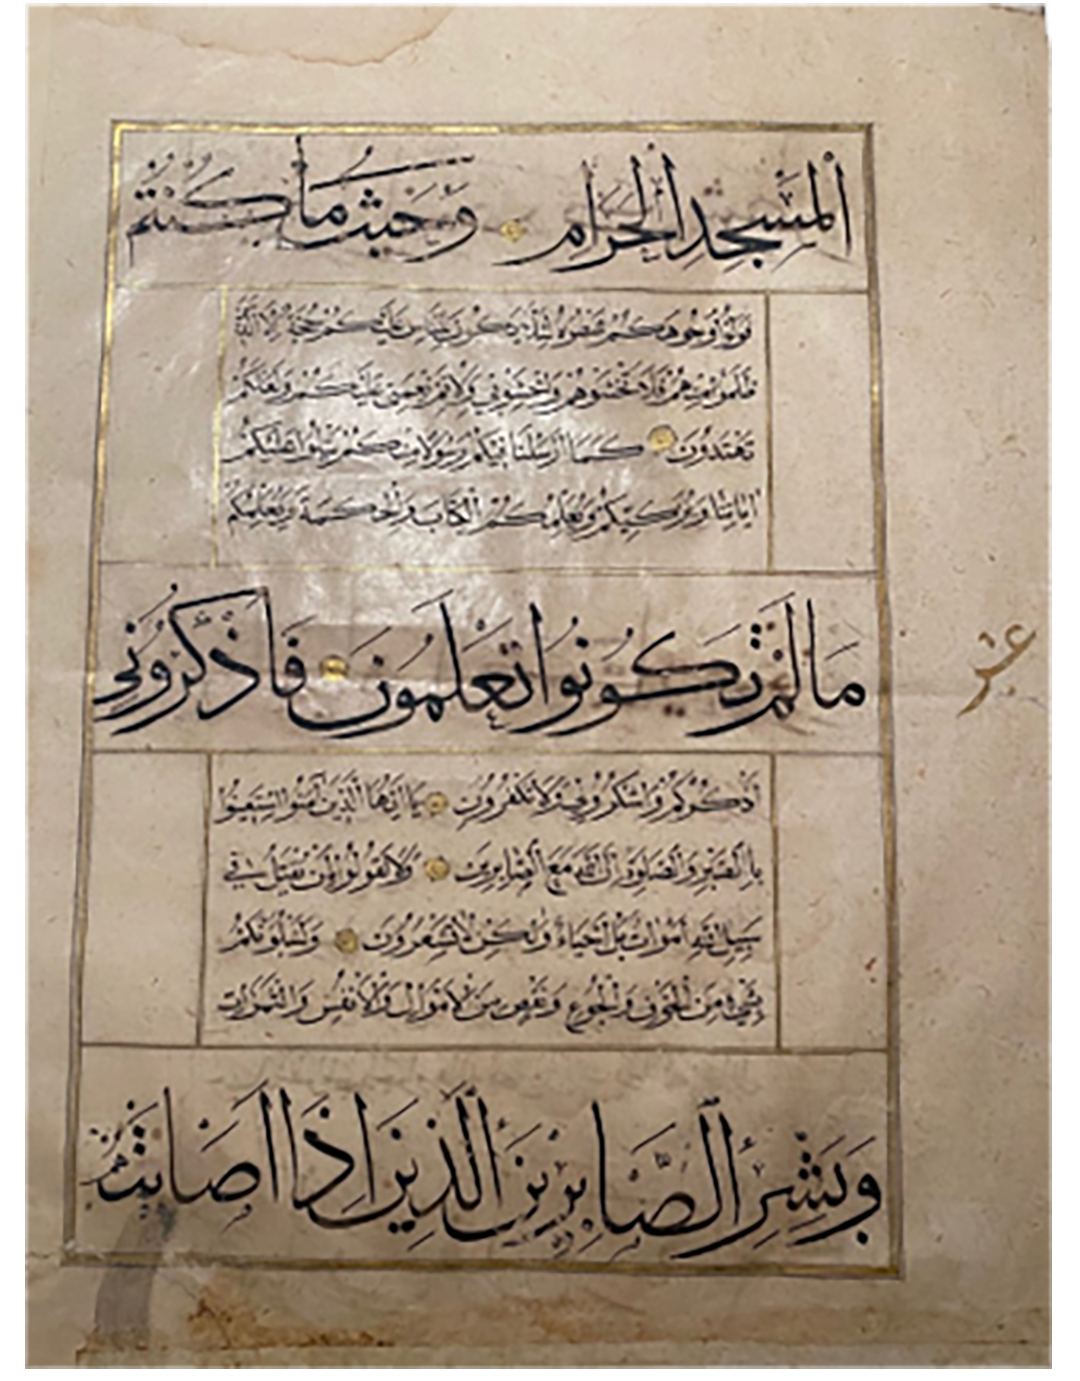 المسجد الحرام وحيث ما كنتم
فولوا وجوهكم شطره لئلا يكون للناس عليكم حجة الا الذين
ظلموا منهم فلا تخشوهم واخشوني ولاتم نعمتي عليكم ولعلكم
تهتدون كما ارسلنا فيكم رسولا منكم يتلوا عليكم
اياتنا ويزكيكم ويعلمكم الكتاب والحكمة ويعلمكم
ما لم تكونوا تعلمون فاذكروني
عشر
اذكركم واشكروا لي ولا تكفرون يا ايها الذين امنوا استعينوا
بالصبر والصلوة ان الله مع الصابرين ولا تقولوا لمن يقتل في
سبيل الله اموات بل احياء ولكن لا تشعرون ولنبلونكم
بشيء من الخوف والجوع ونقص من الاموال والانفس والثمرات
وبشر الصابرين الذين اذا اصابتهم